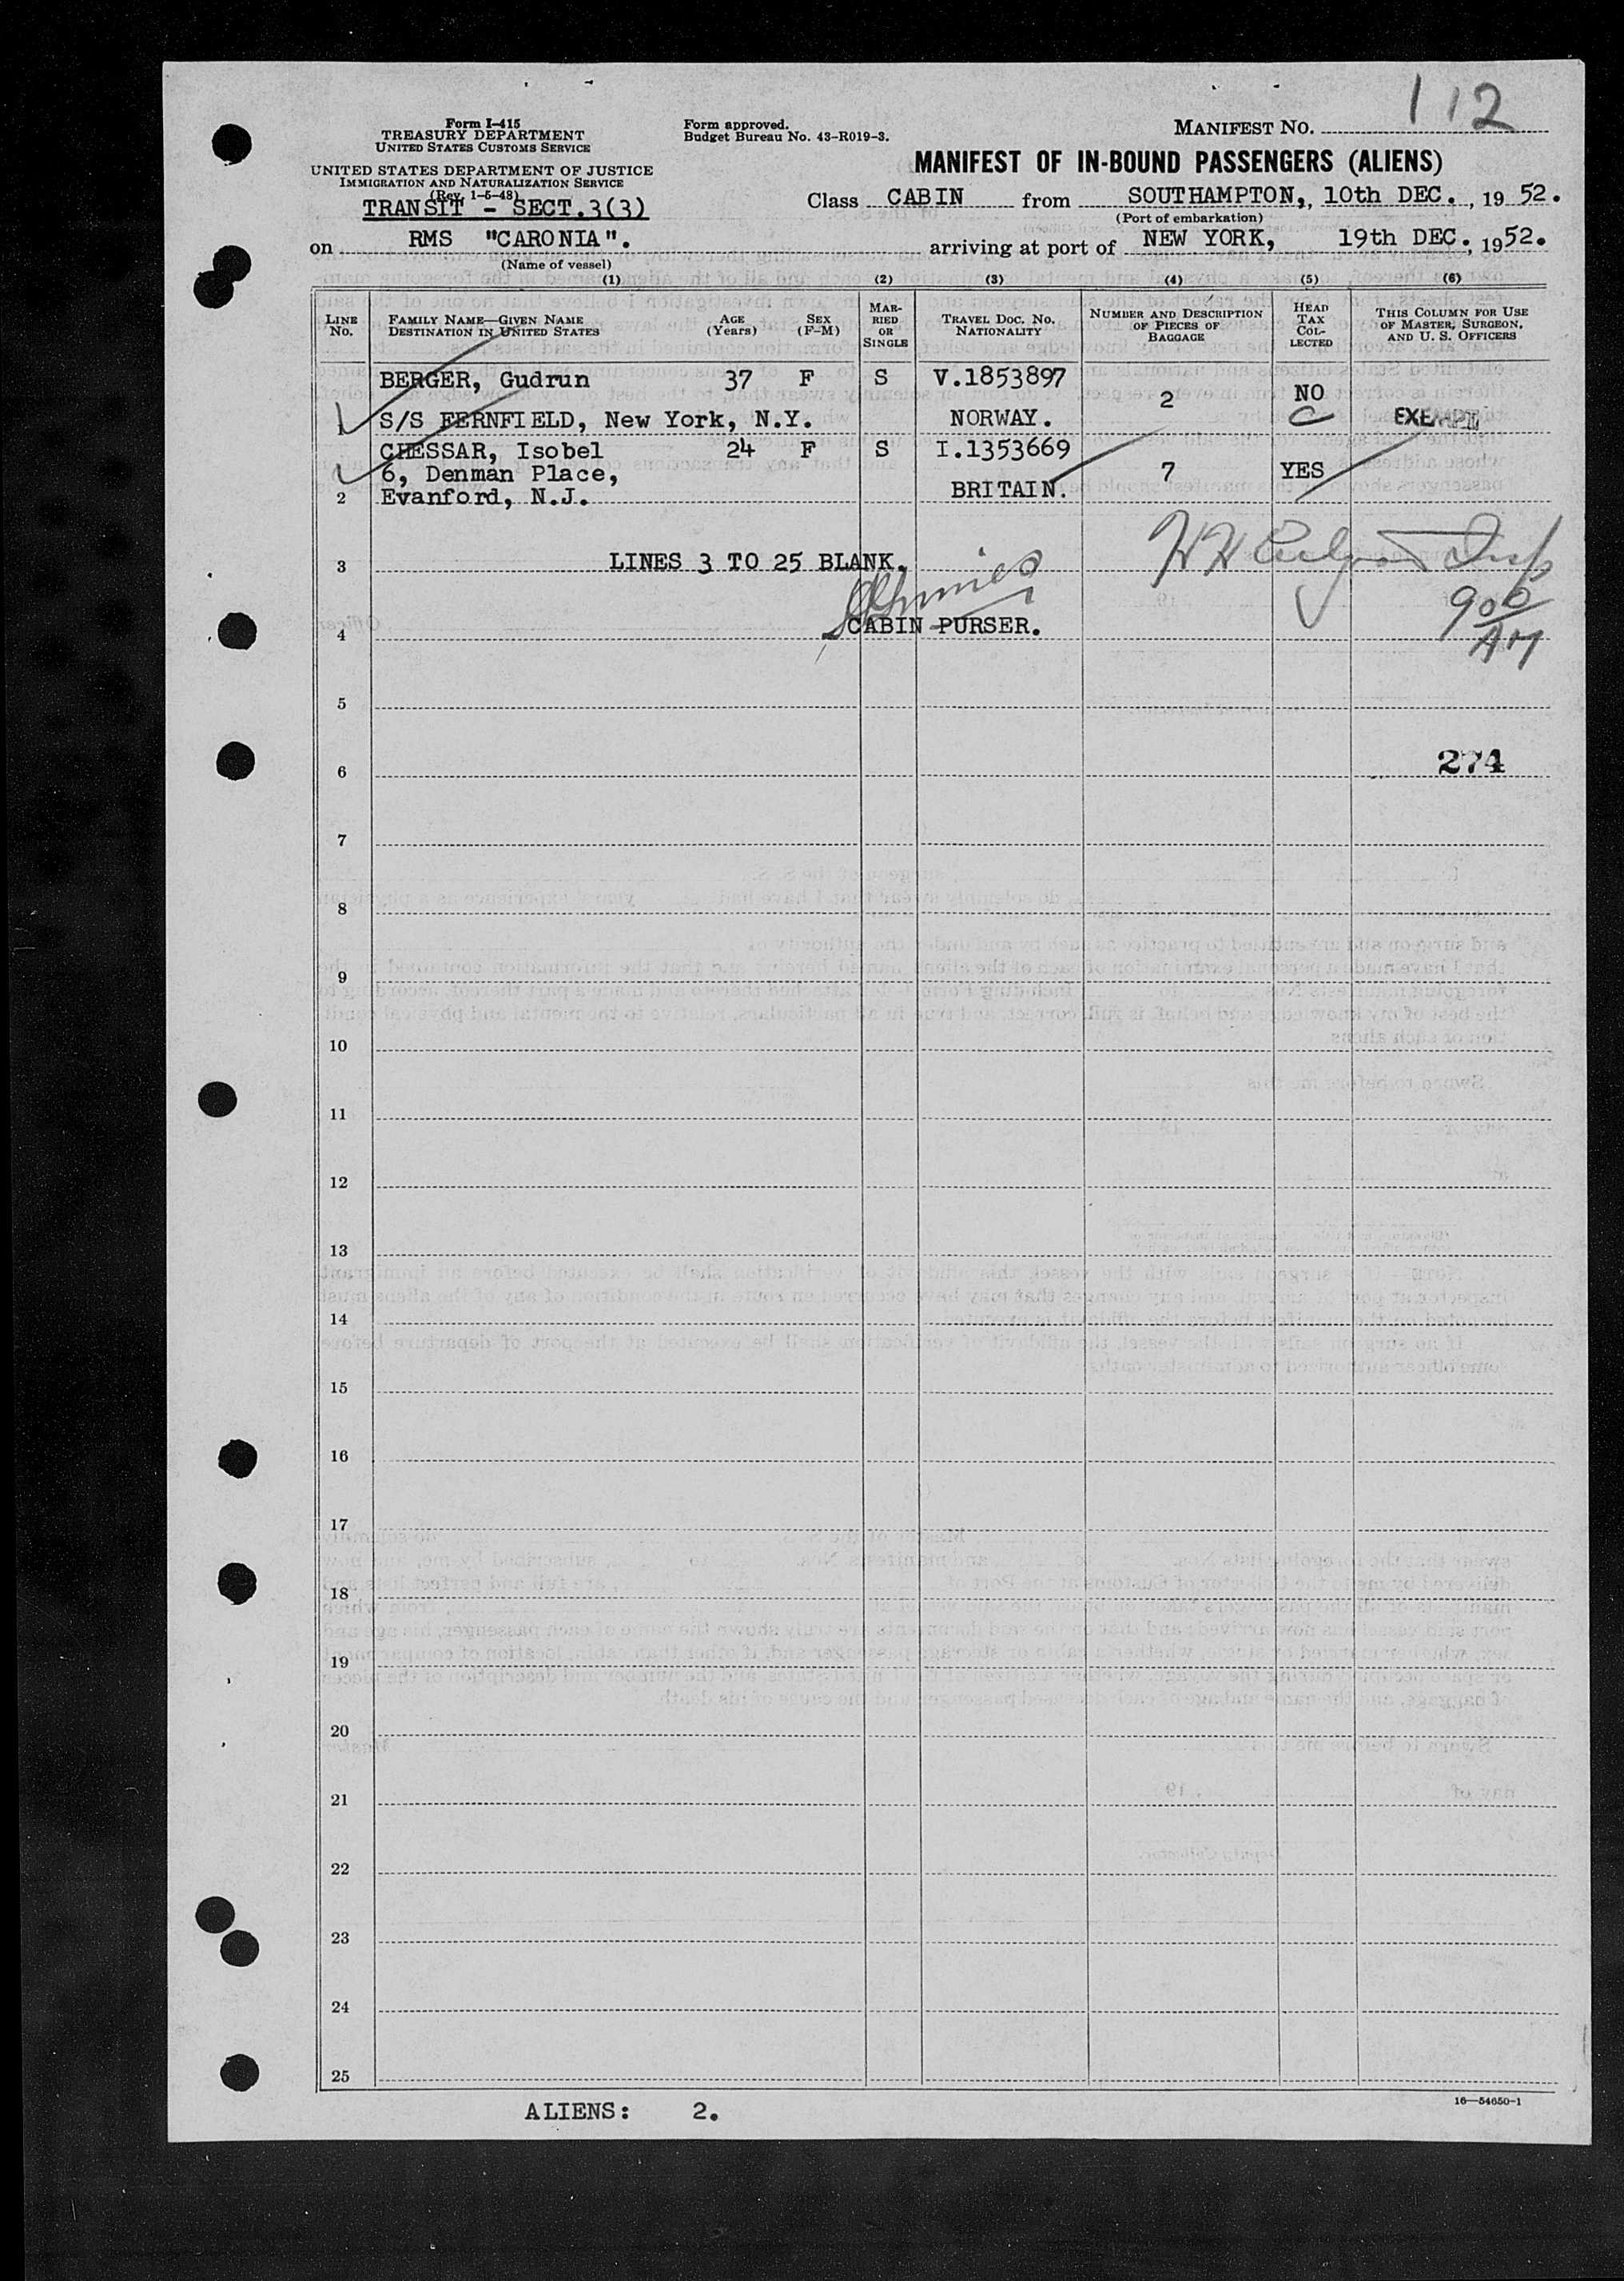 112
Form I-415
TREASURY DEPARTMENT
UNITED STATES CUSTOMS SERVICE
Form approved.
Budget Bureau No. 43-R019-3.
MANIFEST NO.
UNITED STATES DEPARTMENT OF JUSTICE
IMMIGRATION AND NATURALIZATION SERVICE
(Rev. 1-5-48)
MANIFEST OF IN-BOUND PASSENGERS (ALIENS)
TRANSIT - SECT.3(3)
Class CABIN from SOUTHAMPTON,, 10th DEC., 19 52.
(Port of embarkation)
on RMS "CARONIA". arriving at port of NEW YORK, 19th DEC., 1952.
(Name of vessel)
(1) (2) (3) (4) (5) (6)
LINE No. FAMILY NAME—GIVEN NAME DESTINATION IN UNITED STATES AGE (Years) SEX (F-M) MARRIED OR SINGLE TRAVEL DOC. NO. NATIONALITY NUMBER AND DESCRIPTION OF PIECES OF BAGGAGE HEAD TAX COLLECTED THIS COLUMN FOR USE OF MASTER, SURGEON, AND U. S. OFFICERS
BERGER, Gudrun 37 F S V.1853897
2 NO
1 S/S FERNFIELD, New York, N.Y. NORWAY. EXEMPT
CHESSAR, Isobel 24 F S I.1353669
6, Denman Place, 7 YES
2 Evanford, N.J. BRITAIN.
3 LINES 3 TO 25 BLANK.
900
AM
4 CABIN PURSER.
5
6 274
7
8
9
10
11
12
13
14
15
16
17
18
19
20
21
22
23
24
25
16—54650-1
ALIENS: 2.